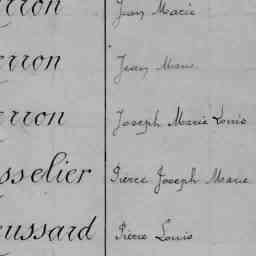 rron Jean Marie
rron Jean Marie
rron Joseph Marie Louis
sselier Pierre Joseph Marie
eussard Pierre Louis